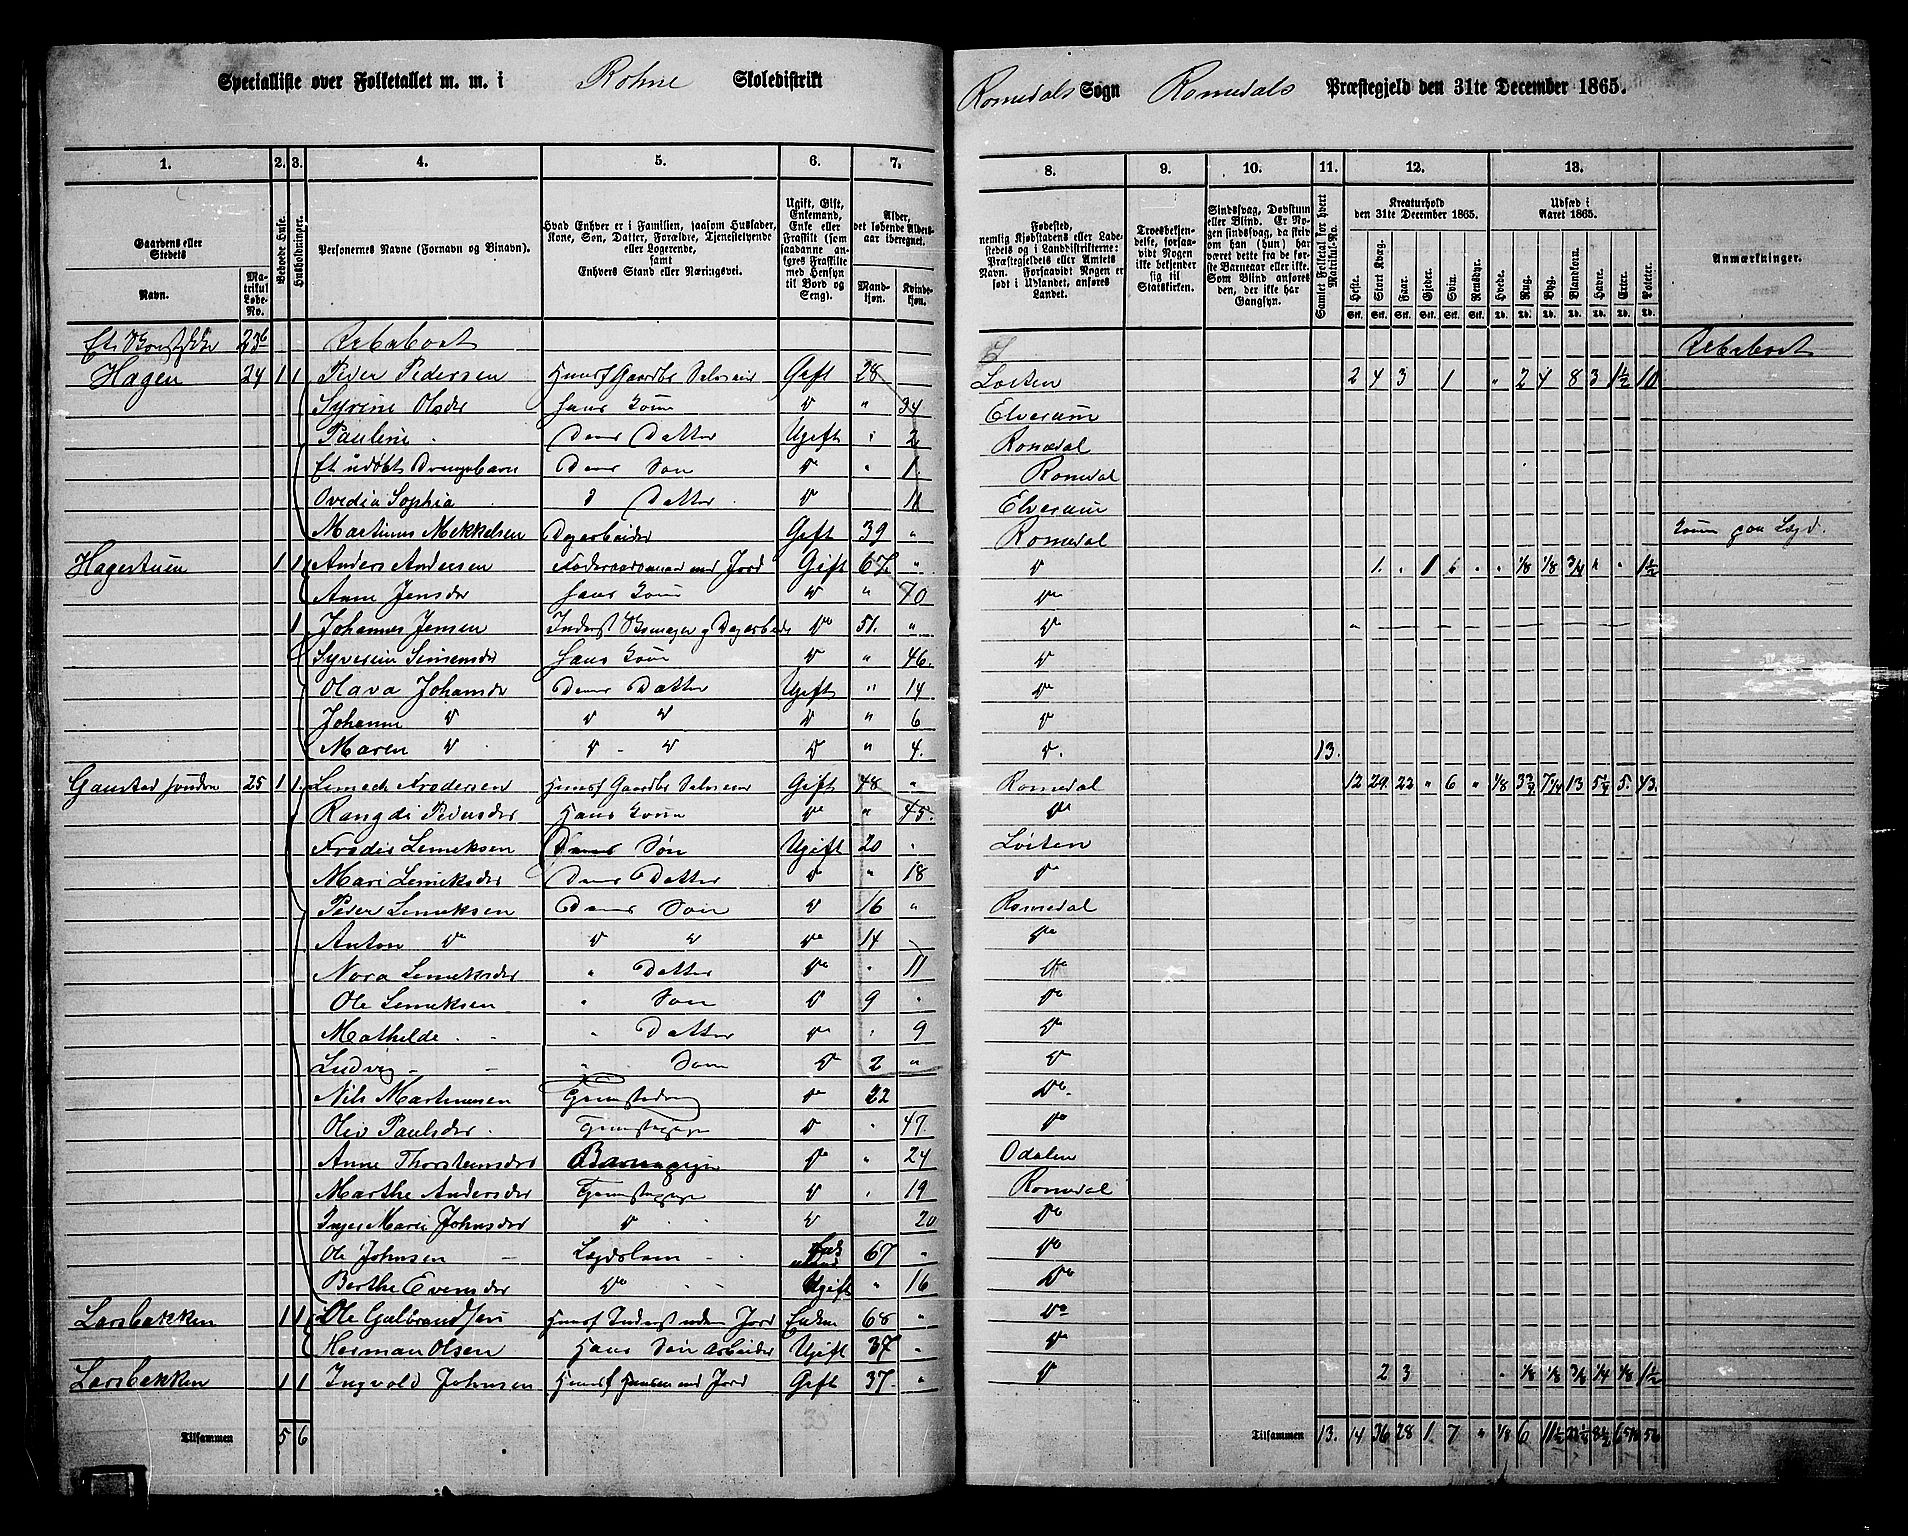 Specialliste over Folketallet m. m. i Rohne Skoledistrikt Romedals Sogn Romedals Præstegjeld den 31te December 1865.
1. 2. 3. 4. 5. 6. 7. 8. 9. 10. 11. 12. 13.
Gaardens eller Stedets Navn. Matrikul Løbe-No. Beboede Huse. Husholdninger. Personernes Navne (Fornavn og Binavn).
Hvad Enhver er i Familien, saasom Husfader, Kone, Søn, Datter, Forældre, Tjenestetyende eller Logerende, samt Enhvers Stand eller Næringsvei.
Ugift, Gift, Enkemand, Enke eller Fraskilt (som saadanne anføres Fraskilte med Hensyn til Bord og Seng).
Alder, det løbende Alders-aar iberegnet. Mandkjøn. Kvindekjøn.
Fødested, nemlig Kjøbstadens eller Ladestedets og i Landdistrikterne: Præstegjeldets eller Amtets Navn. Forsaavidt Nogen er født i Udlandet, anføres Landet.
Troesbekjendelse, forsaavidt Nogen ikke bekjender sig til Statskirken.
Sindssvag, Døvstum eller Blind. Er Nogen sindssvag, da skriv om han (hun) har været dette fra de første Barneaar eller ikke. Som Blind anføres den, der ikke har Gangsyn.
Samlet Folketal for hvert Matrikul-No.
Kreaturhold den 31te December 1865. Heste. Stort Kvæg. Faar. Gjeder. Svin. Rensdyr.
Udsæd i Aaret 1865. Hvede. Rug. Byg. Blandkorn. Havre. Erter. Poteter.
Anmærkninger.
23b Ubeboet Ubeboet
Hagen 24 1 1 Peder Pedersen Huusf Gaardbr Selveier Gift 28 Løiten 2 4 3 1 " 2 4 8 3 1½ 10
Syrine Olsdr hans Kone do " 34 Elverum
Pauline Deres Datter Ugift " 2 Romedal
Et udøbt Drengebarn Deres Søn do " 1 Romedal
Ovedia Sophia d Datter do 11 Elverum
Martinus Mekkelsen Dagarbeider Gift 39 " Romedal
Hagestuen 1 1 Anders Andersen Føderaadsmand med Jord Gift 67 " do 1 " 1 " " ⅛ ⅛ ¾ " " 1½
Anne Jensdr hans Kone do " 70 do
1 Johannes Jensen Inderst Skomager og Dagarbeider do 51 " do
Syverine Simensdr hans Kone do " 46 do
Olava Johansdr Deres Datter Ugift " 14 do
Johanne do do do do " 6 do
Maren do do - do do " 4. do. 13.
Gaustad søndre 25 1 1 Lemech Frodesen Huusf Gaardbr Selveier Gift 48 " Romedal 12 29. 22 " 6 " ⅛ 13 5. 43.
Rangdi Pedersdr Hans Kone do " 45. do
Frodes Lemeksen Deres Søn Ugift 20 " Løiten
Mari Lemeksdr Deres Datter do " 18 do
Peder Lemeksen Deres Søn do 16 " Romedal
Anton do do do do 14 do
Nora Lemeksdr " Datter do " 11 do
Ole Lemeksen " Søn do 9 " do
Mathilde " Datter do " 9 do
Ludvig " Søn do 2 " do
Nils Martinusen Tjenestedreng do 22 do
Oliv Paulsdr Tjenestepige do " 47. do
Anne Thorstensdr Barnepige do " 24 Odalen
Marthe Andersdr Tjenestepige do " 19 Romedal
Inger Marie Johnsdr do do 20 do
Ole Johnsen Lægdslem Enkemand 67 " do
Berthe Evensdr do Ugift " 16 do
Larsbakken 1 1 Ole Gulbrandsen Huusf Inderst uden Jord Enkem 68 " do
Herman Olsen Hans Søn Arbeider Ugift 37 " do
Larsbakken 1 1 Ingvald Johnsen Huusf Huusm med Jord Gift 37 " do 2 3 " ⅛ ⅛ ⅜ ¼ ⅛ 1½
Tilsammen 5 6 Tilsammen 13. 14 36 28 1 7 " ⅛ 6